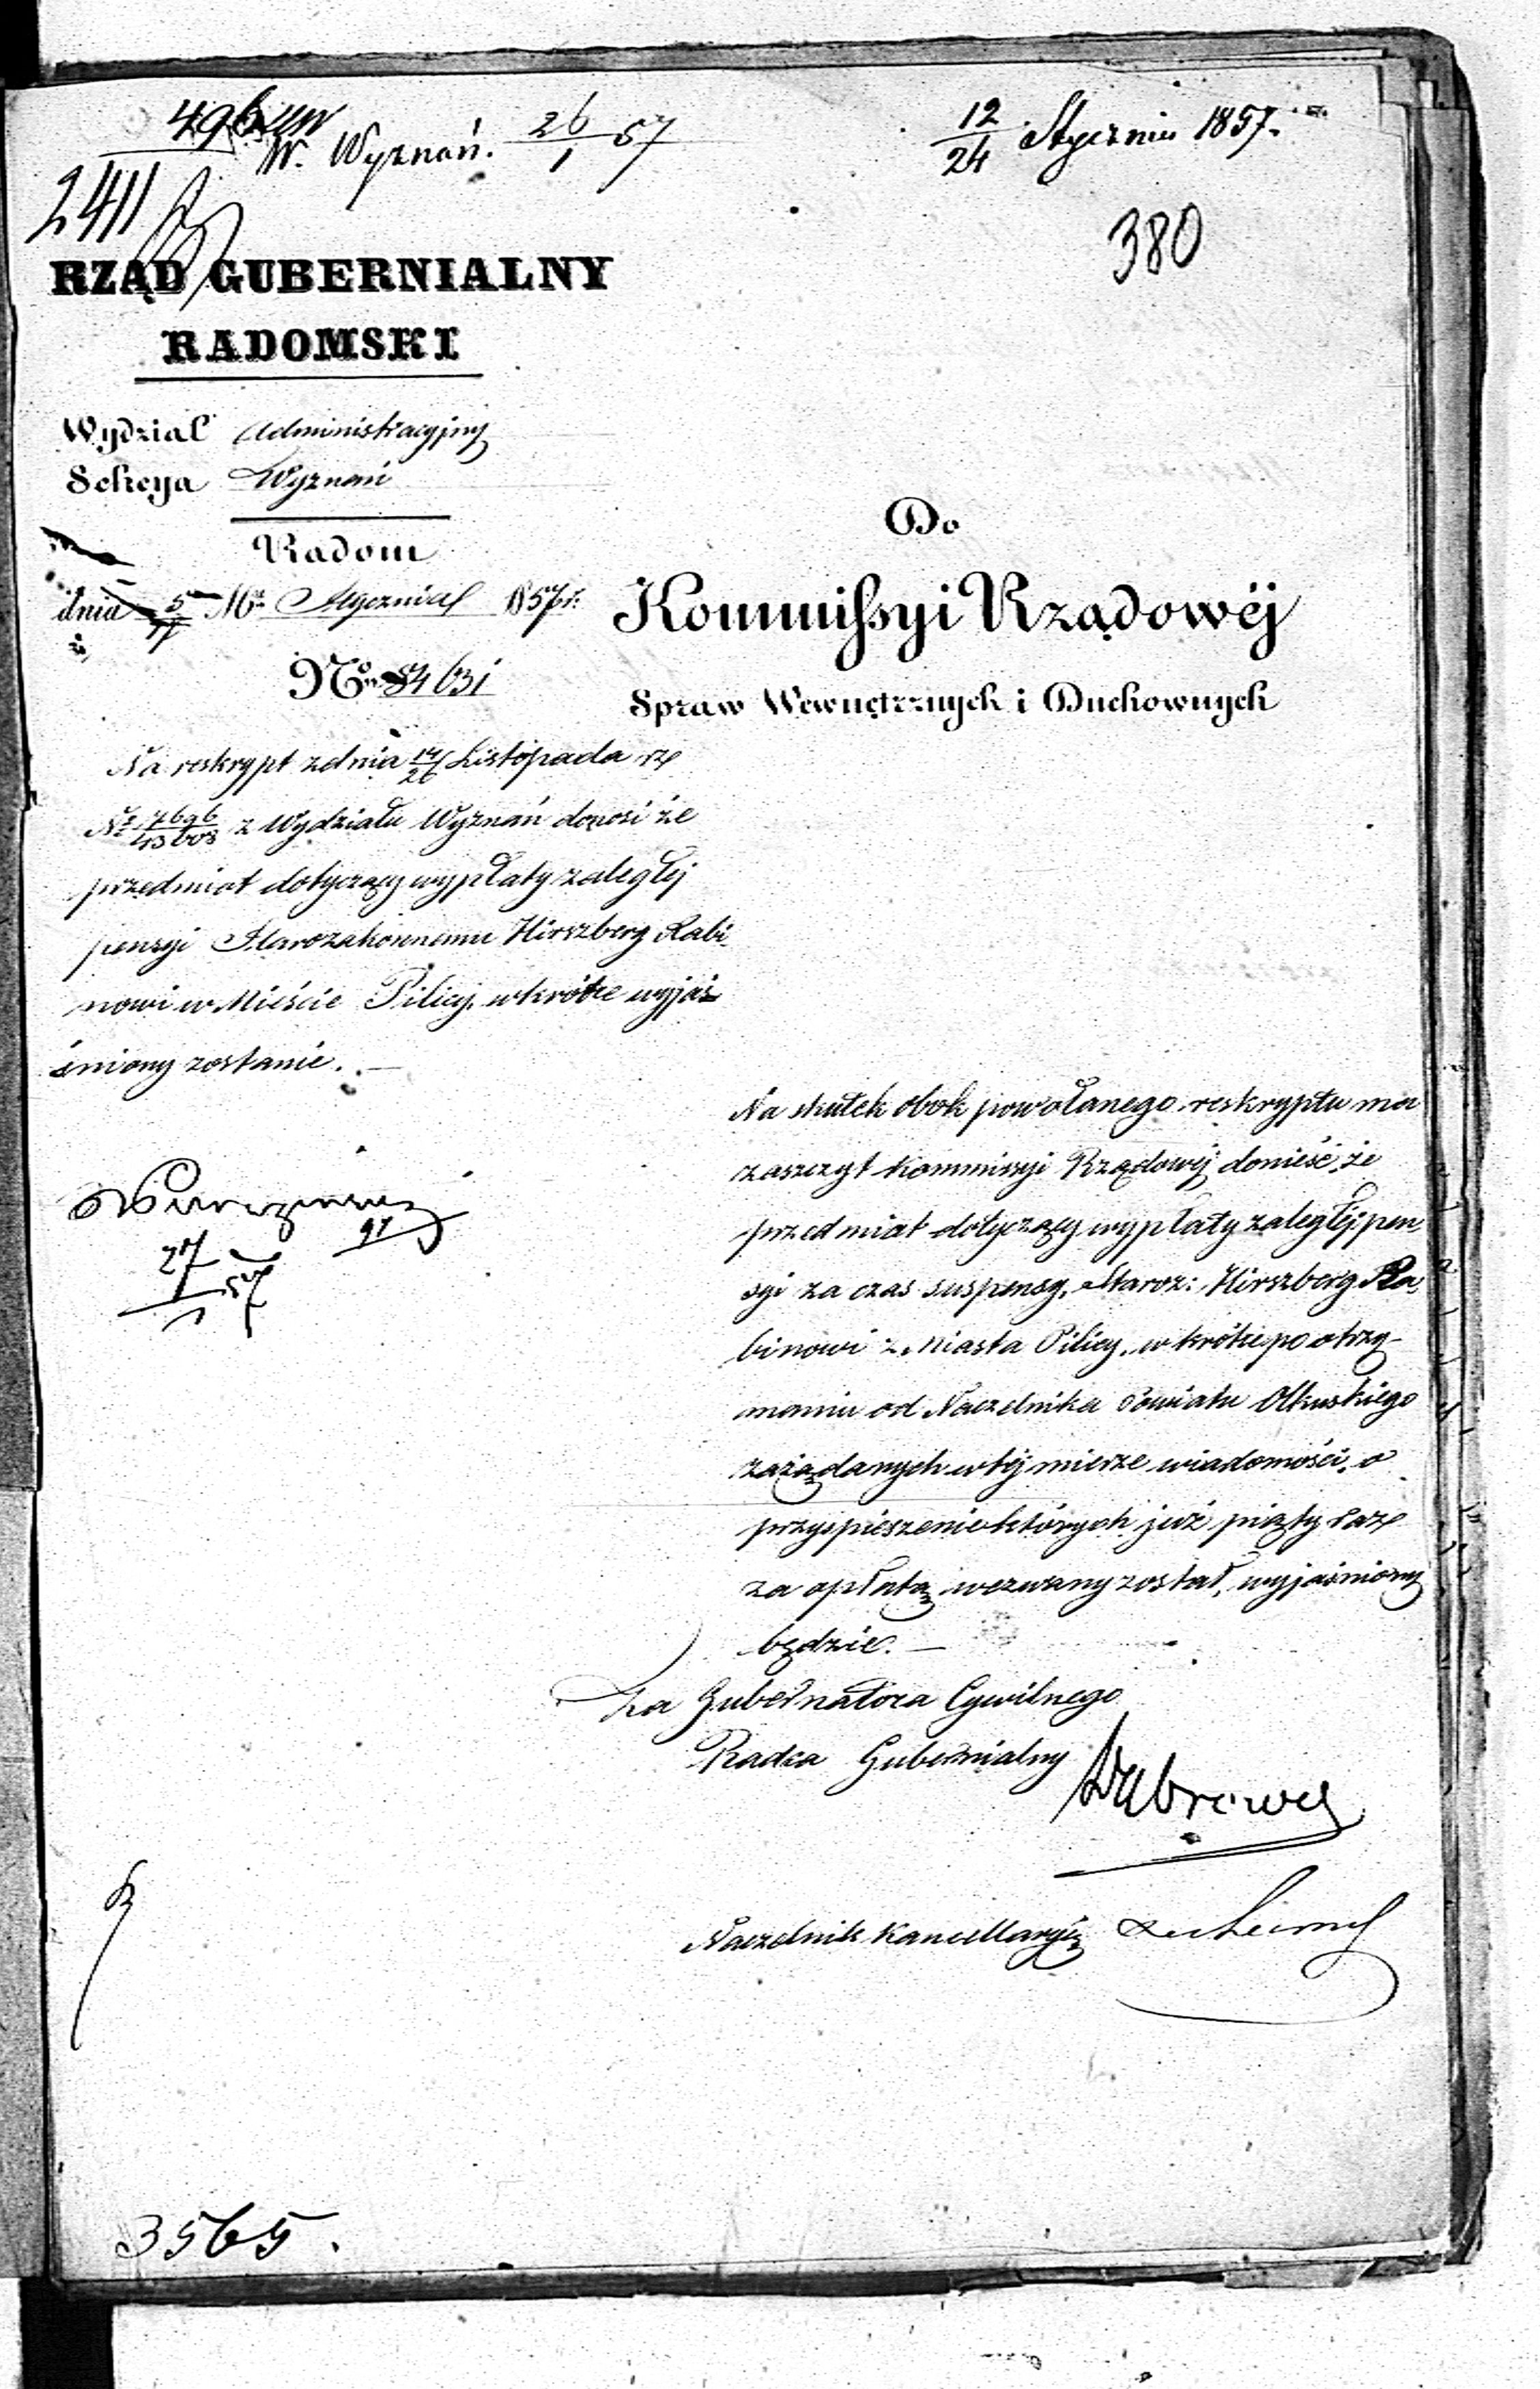 496
W. Wyznań. 26/1 57
12/24 Stycznia 1857.
2411
380
RZĄD GUBERNIALNY
RADOMSKI
Wydział Administracyjny
Sekcya Wyznań
Radom
dnia 5/17 Mca Stycznia 1857 r.
No 84631
Do
Kommissyi Rządowéj
Spraw Wewnętrznych i Duchownych
Na reskrypt zdnia 14/26 Listopada rz
No 7696/43603 z Wydziału Wyznań donosi że
przedmiot dotyczący wypłaty zaległej
pensyi Starozakonnemu Hirszberg Rabi
nowi w Mieście Pilicy, wkrótce wyjaś
śniony zostanie. —
27/1 57
Na skutek obok powołanego reskryptu ma
zaszczyt Kommissyi Rządowéj donieść, że
przedmiot dotyczący wypłaty zaległéj pen
syi za czas suspensy, Staroz: Hirszberg Ra
binowi z Miasta Pilicy, wkrótce po otrzy-
maniu od Naczelnika Powiatu Olkuskiego
zażądanych w téj mierze wiadomości, o
przyspieszenie których już piąty raz
za opłatą wezwany został, wyjaśniony
będzie. —
Za Gubernatora Cywilnego
Radca Gubernialny
Naczelnik Kancellaryi
3565.